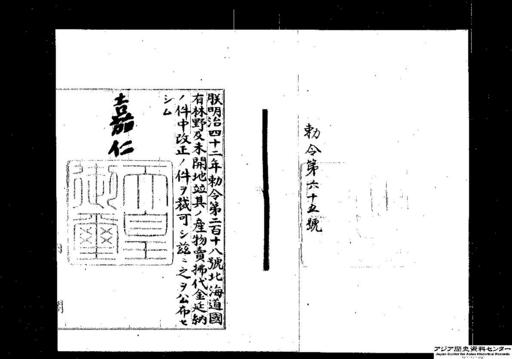 勅令第六十五號
朕明治四十二年勅令第二百十八號北海道國
有林野及未開地竝其ノ産物賣拂代金延納
ノ件中改正ノ件ヲ裁可シ茲ニ之ヲ公布セ
シム
嘉仁
天皇
御璽
アジア歴史資料センター
Japan Center for Asian Historical Records